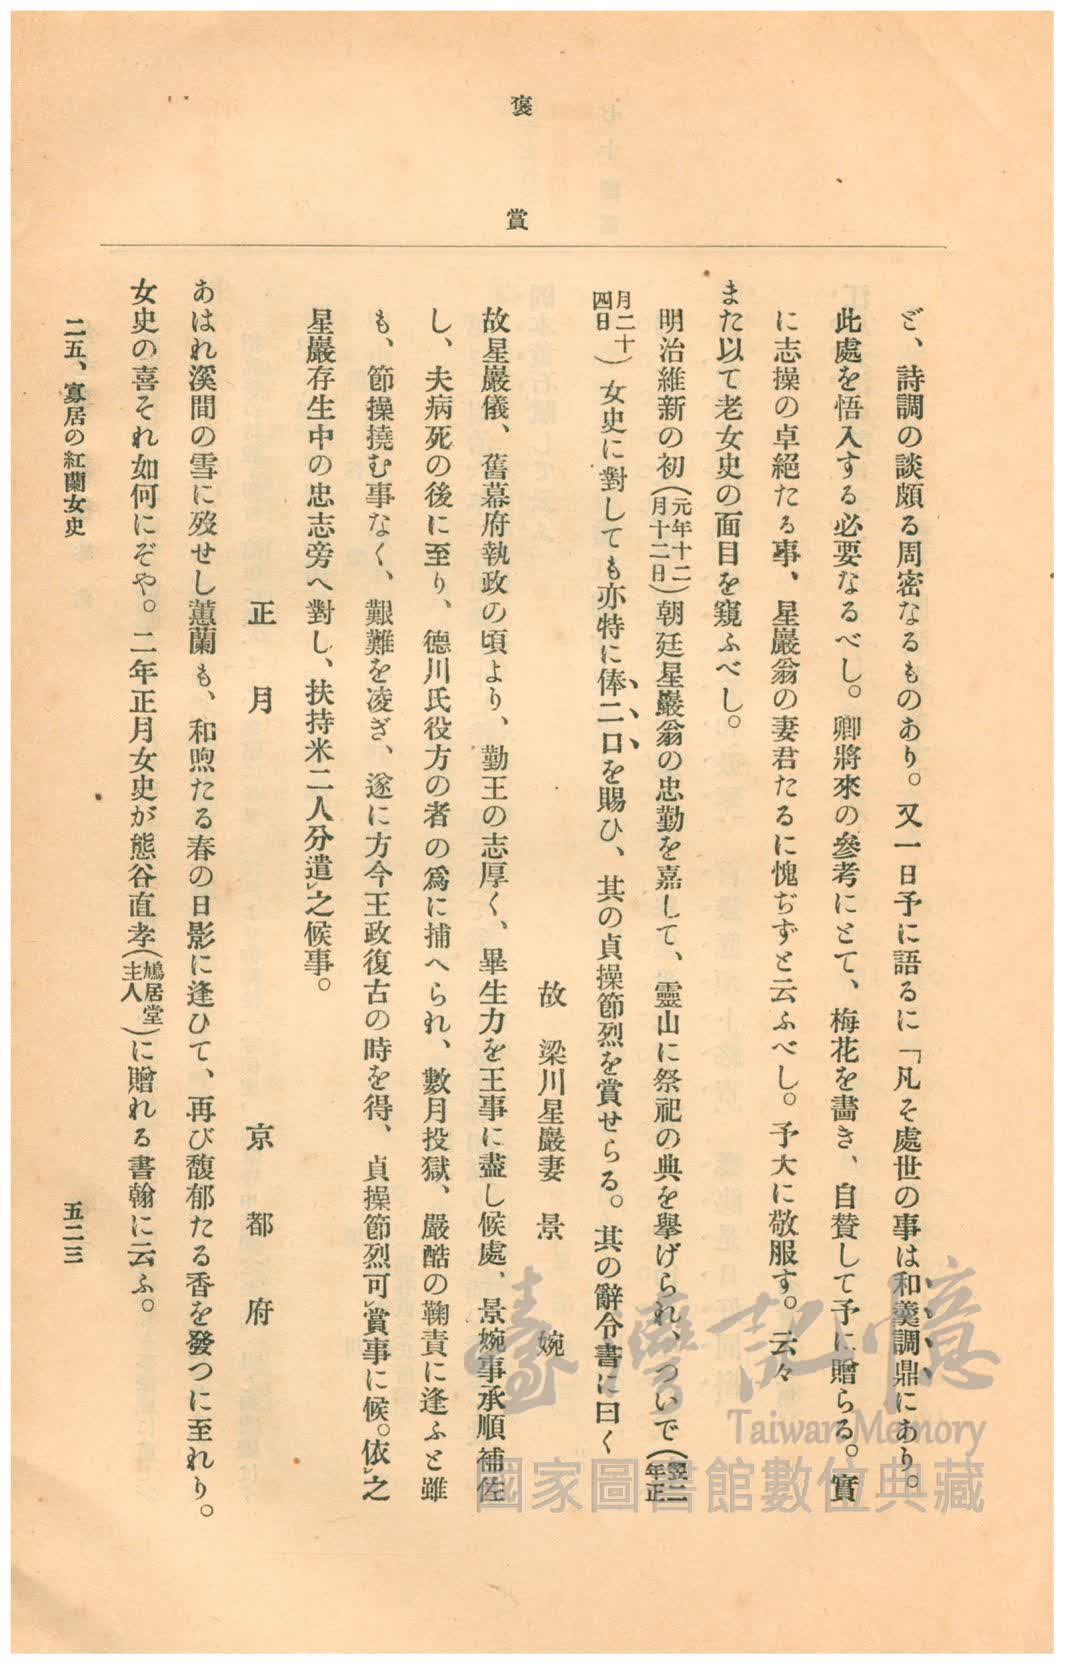 褒賞
ど、詩調の談頗る周密なるものあり。又一日予に語るに「凡そ處世の事は和羹調鼎にあり。
此處を悟入する必要なるべし。卿將來の參考にとて、梅花を畵き、自賛して予に贈らる。實
に志操の卓絕たる事、星巖翁の妻君たるに愧ぢずと云ふべし。予大に敬服す。云々
また以て老女史の面目を窺ふべし。
明治維新の初(元年十二月十二日)朝廷星巖翁の忠勤を嘉して、靈山に祭祀の典を擧げられ、ついで(翌二年正
月二十四日)女史に對しても亦特に俸二口を賜ひ、其の貞操節烈を賞せらる。其の辭令書に曰く
故 梁川星巖妻 景 婉
故星巖儀、舊幕府執政の頃より、勤王の志厚く、畢生力を王事に盡し候處、景婉事承順補佐
し、夫病死の後に至り、德川氏役方の者の爲に捕へられ、數月投獄、嚴酷の鞠責に逢ふと雖
も、節操撓む事なく、艱難を凌ぎ、遂に方今王政復古の時を得、貞操節烈可㆑賞事に候。依㆑之
星巖存生中の忠志旁へ對し、扶持米二人分遣㆑之候事。
正月 京都府
あはれ溪間の雪に歿せし蕙蘭も、和煦たる春の日影に逢ひて、再び馥郁たる香を發つに至れり。
女史の喜それ如何にぞや。二年正月女史が熊谷直孝(鳩居堂主人)に贈れる書翰に云ふ。
二五、寡居の紅蘭女史
五二三
臺灣記憶
Taiwan Memory
國家圖書館數位典藏